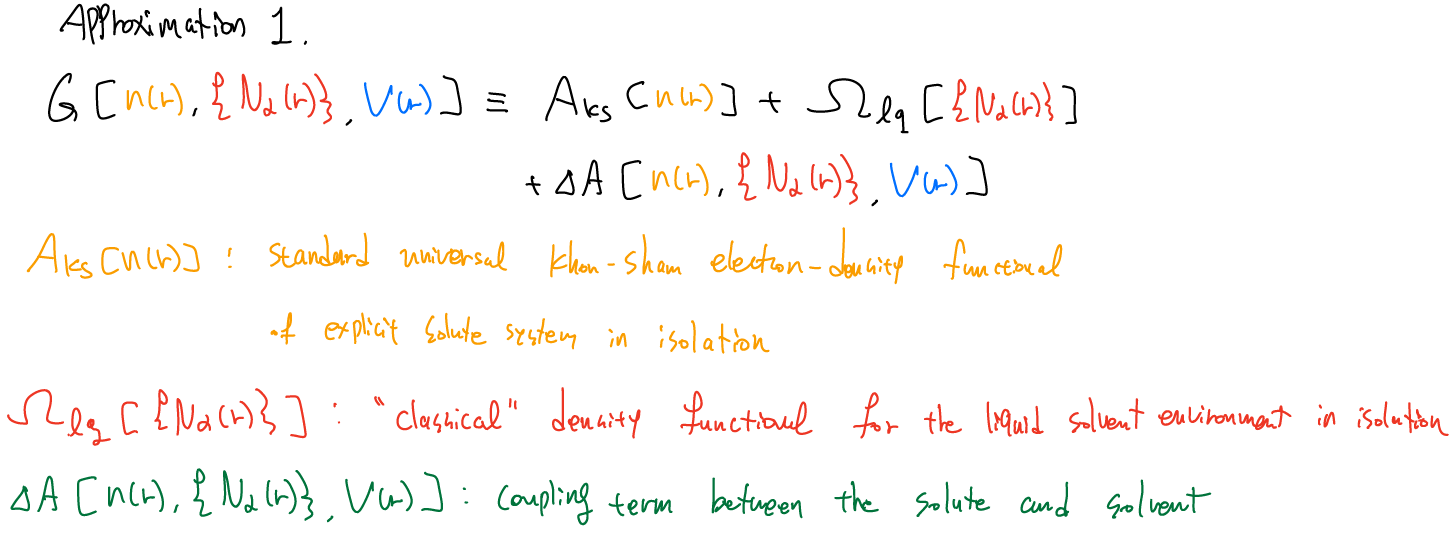 Approximation 1.
G[n(r), {N_α(r)}, V(r)] ≡ A_KS[n(r)] + Ω_lq[{N_α(r)}]
+ ΔA[n(r), {N_α(r)}, V(r)]
A_KS[n(r)] : standard universal Khon-sham electron-density functional
of explicit solute system in isolation
Ω_lq[{N_α(r)}] : "classical" density functional for the liquid solvent environment in isolation
ΔA[n(r), {N_α(r)}, V(r)] : coupling term between the solute and solvent